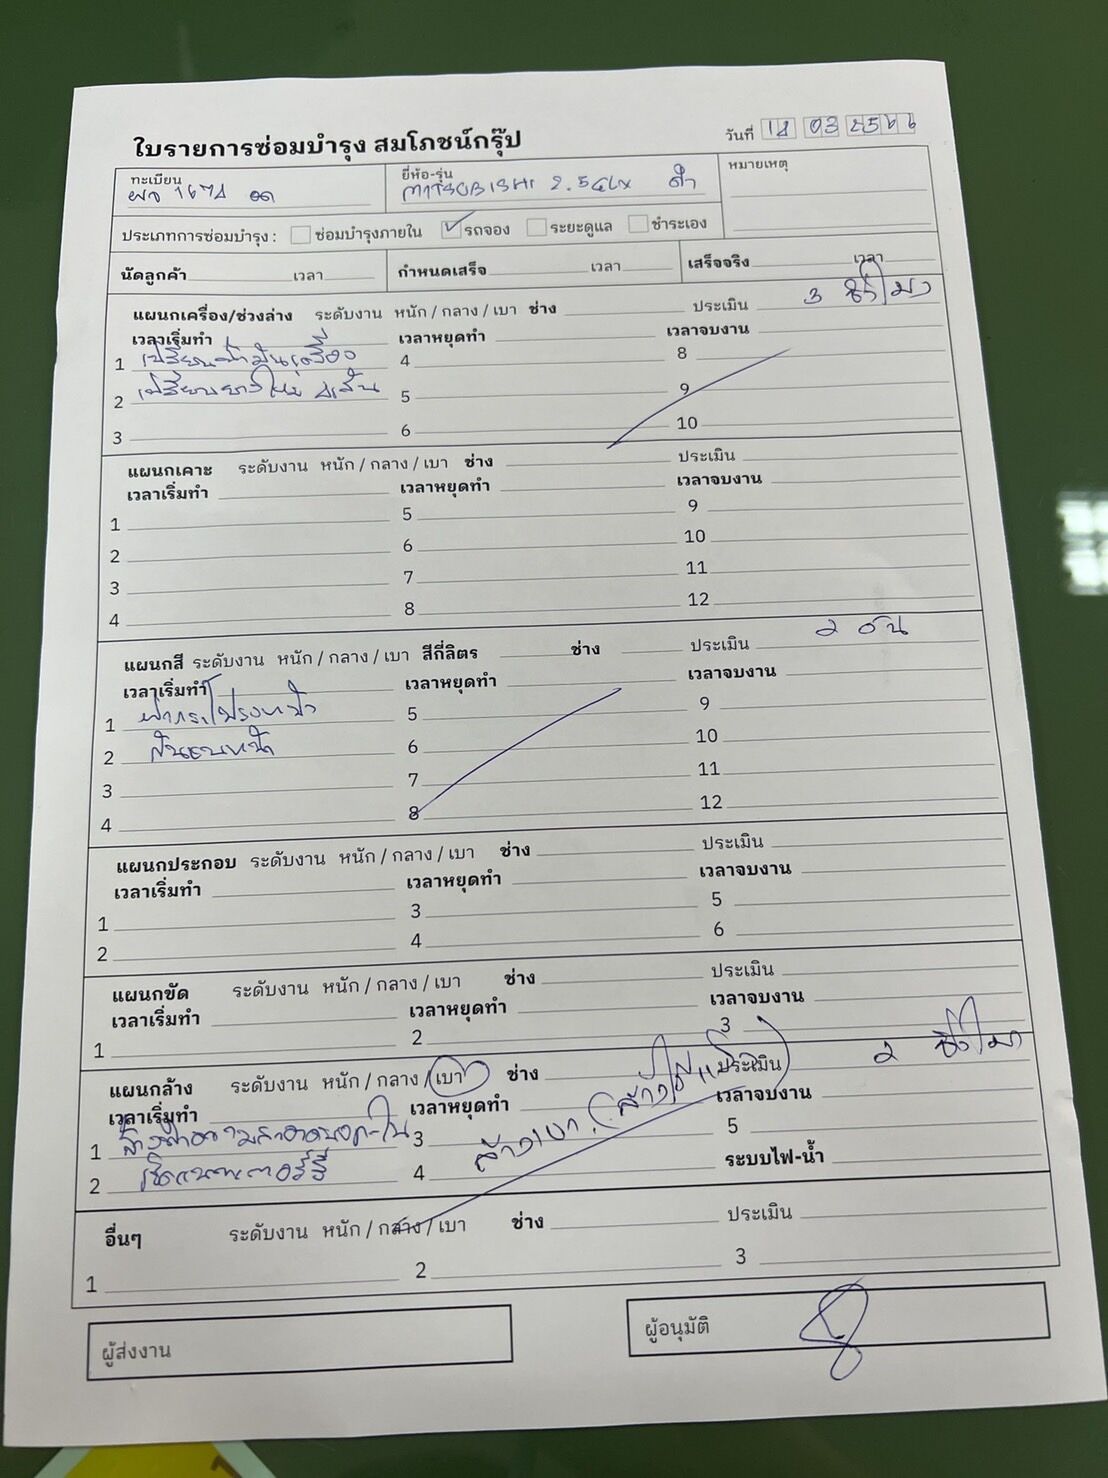 ใบรายการซ่อมบำรุง สมโภชน์กรุ๊ป
วันที่ 14 03 2566
ทะเบียน
1674
ยี่ห้อ-รุ่น
MITSUBISHI 2.5GLX ดำ
หมายเหตุ
ประเภทการซ่อมบำรุง : ซ่อมบำรุงภายใน รถจอง ระยะดูแล ชำระเอง
นัดลูกค้า เวลา กำหนดเสร็จ เวลา เสร็จจริง เวลา
แผนกเครื่อง/ช่วงล่าง ระดับงาน หนัก / กลาง / เบา ช่าง ประเมิน 3 ชั่วโมง
เวลาเริ่มทำ เวลาหยุดทำ เวลาจบงาน
1 เปลี่ยนน้ำมันเครื่อง 4 8
2 เปลี่ยนยางใหม่ 4เส้น 5 9
3 6 10
แผนกเคาะ ระดับงาน หนัก / กลาง / เบา ช่าง ประเมิน
เวลาเริ่มทำ เวลาหยุดทำ เวลาจบงาน
1 5 9
2 6 10
3 7 11
4 8 12
แผนกสี ระดับงาน หนัก / กลาง / เบา สีกี่ลิตร ช่าง ประเมิน 2 วัน
เวลาเริ่มทำ เวลาหยุดทำ เวลาจบงาน
1 ฝากระโปรงหน้า 5 9
2 กันชนหน้า 6 10
3 7 11
4 8 12
แผนกประกอบ ระดับงาน หนัก / กลาง / เบา ช่าง ประเมิน
เวลาเริ่มทำ เวลาหยุดทำ เวลาจบงาน
1 3 5
2 4 6
แผนกขัด ระดับงาน หนัก / กลาง / เบา ช่าง ประเมิน
เวลาเริ่มทำ เวลาหยุดทำ เวลาจบงาน
1 2 3
แผนกล้าง ระดับงาน หนัก / กลาง / เบา ช่าง ประเมิน 2 ชั่วโมง
เวลาเริ่มทำ เวลาหยุดทำ เวลาจบงาน
1 ล้างทำความสะอาดนอก-ใน 3 ล้างเบา 5
2 เช็คแบตเตอร์รี่ 4 ระบบไฟ-น้ำ
อื่นๆ ระดับงาน หนัก / กลาง / เบา ช่าง ประเมิน
1 2 3
ผู้ส่งงาน ผู้อนุมัติ